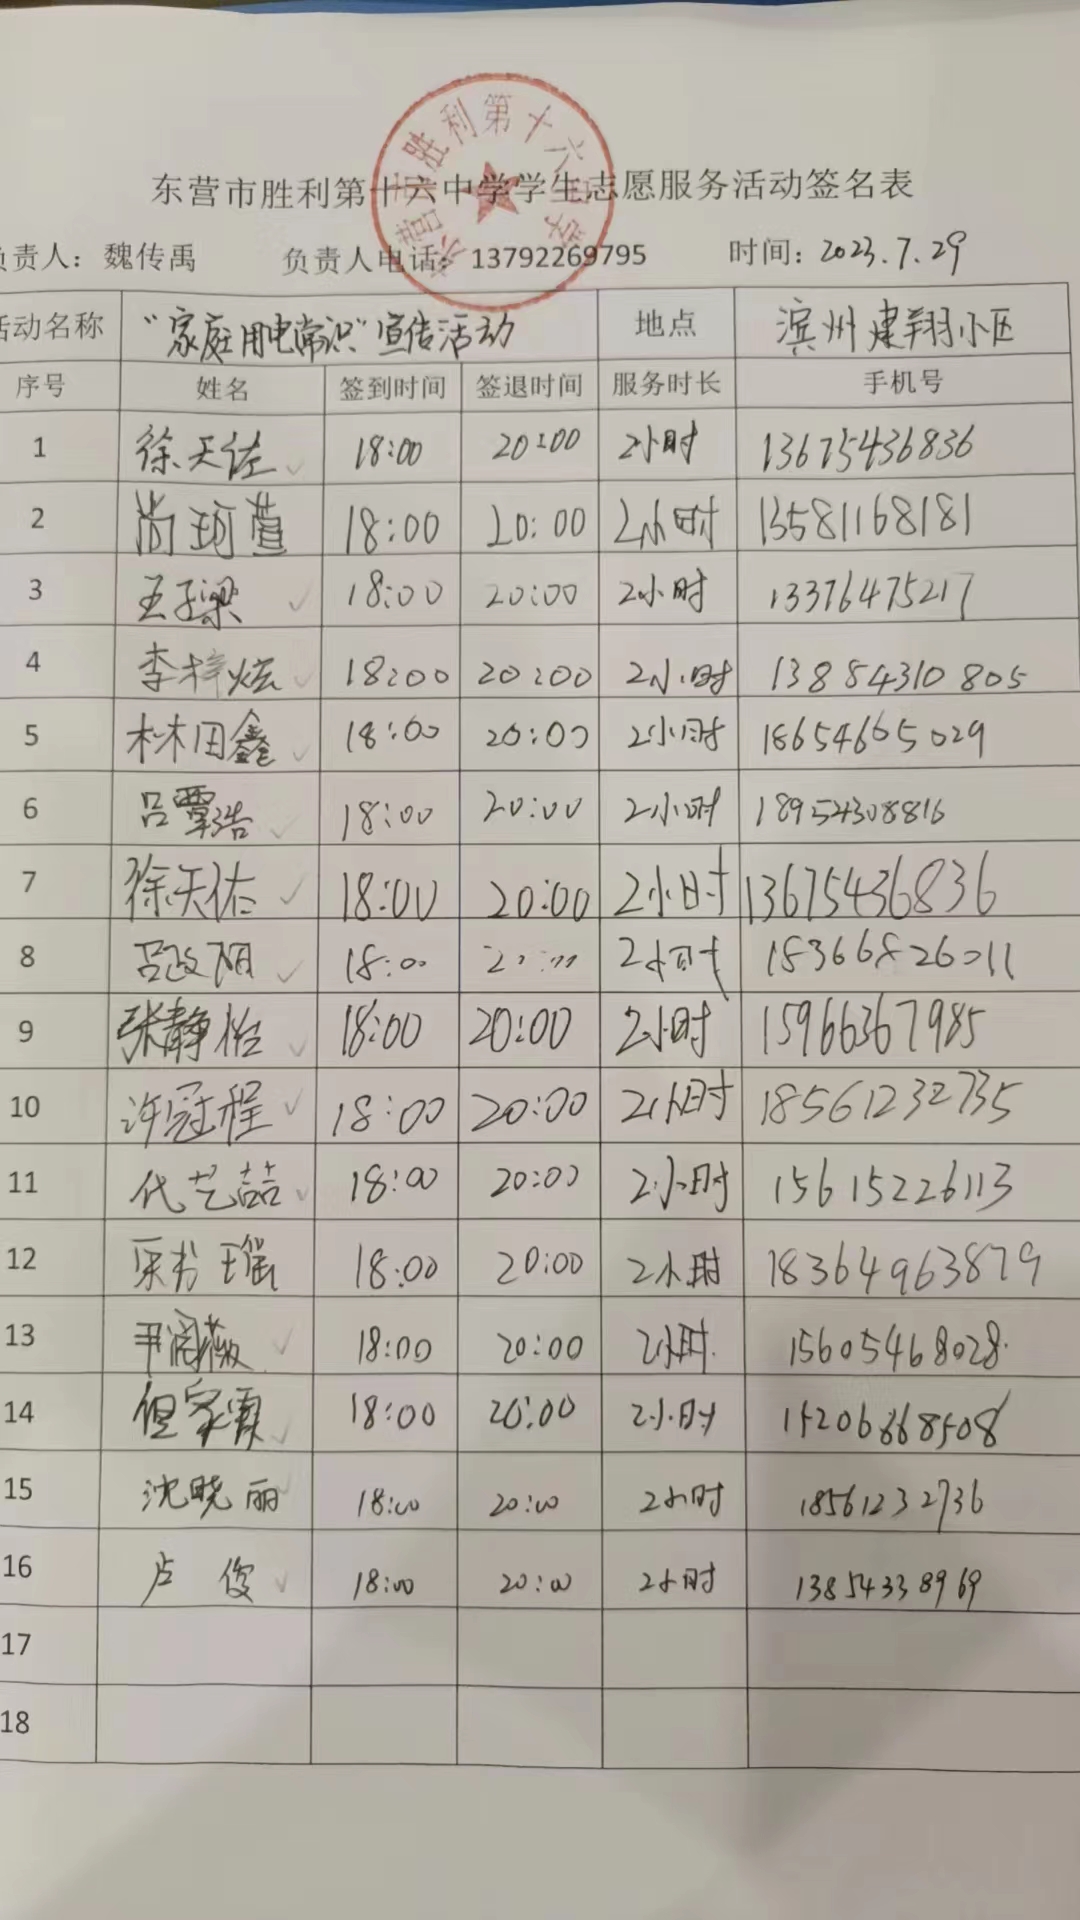 东营市胜利第十六中学
东营市胜利第十六中学学生志愿服务活动签名表
负责人：魏传禹 负责人电话：13792269795 时间：2023.7.29
活动名称 “家庭用电常识”宣传活动 地点 滨州建翔小区
序号 姓名 签到时间 签退时间 服务时长 手机号
1 徐天佑 18:00 20:00 2小时 13675436836
2 尚珂萱 18:00 20:00 2小时 13581168181
3 王子梁 18:00 20:00 2小时 13376475217
4 李梓炫 18:00 20:00 2小时 13884310805
5 林田鑫 18:00 20:00 2小时 18654665029
6 吕覃浩 18:00 20:00 2小时 18954308816
7 徐天佑 18:00 20:00 2小时 13675436836
8 吕政阳 18:00 20:00 2小时 18366826011
9 张静怡 18:00 20:00 2小时 15966367985
10 许冠程 18:00 20:00 2小时 18561232735
11 代艺喆 18:00 20:00 2小时 15615226113
12 18:00 20:00 2小时 18364963879
13 尹阁薇 18:00 20:00 2小时 15605468028
14 但家霖 18:00 20:00 2小时 15206668508
15 沈晓丽 18:00 20:00 2小时 18561232736
16 卢俊 18:00 20:00 2小时 13854338969
17
18